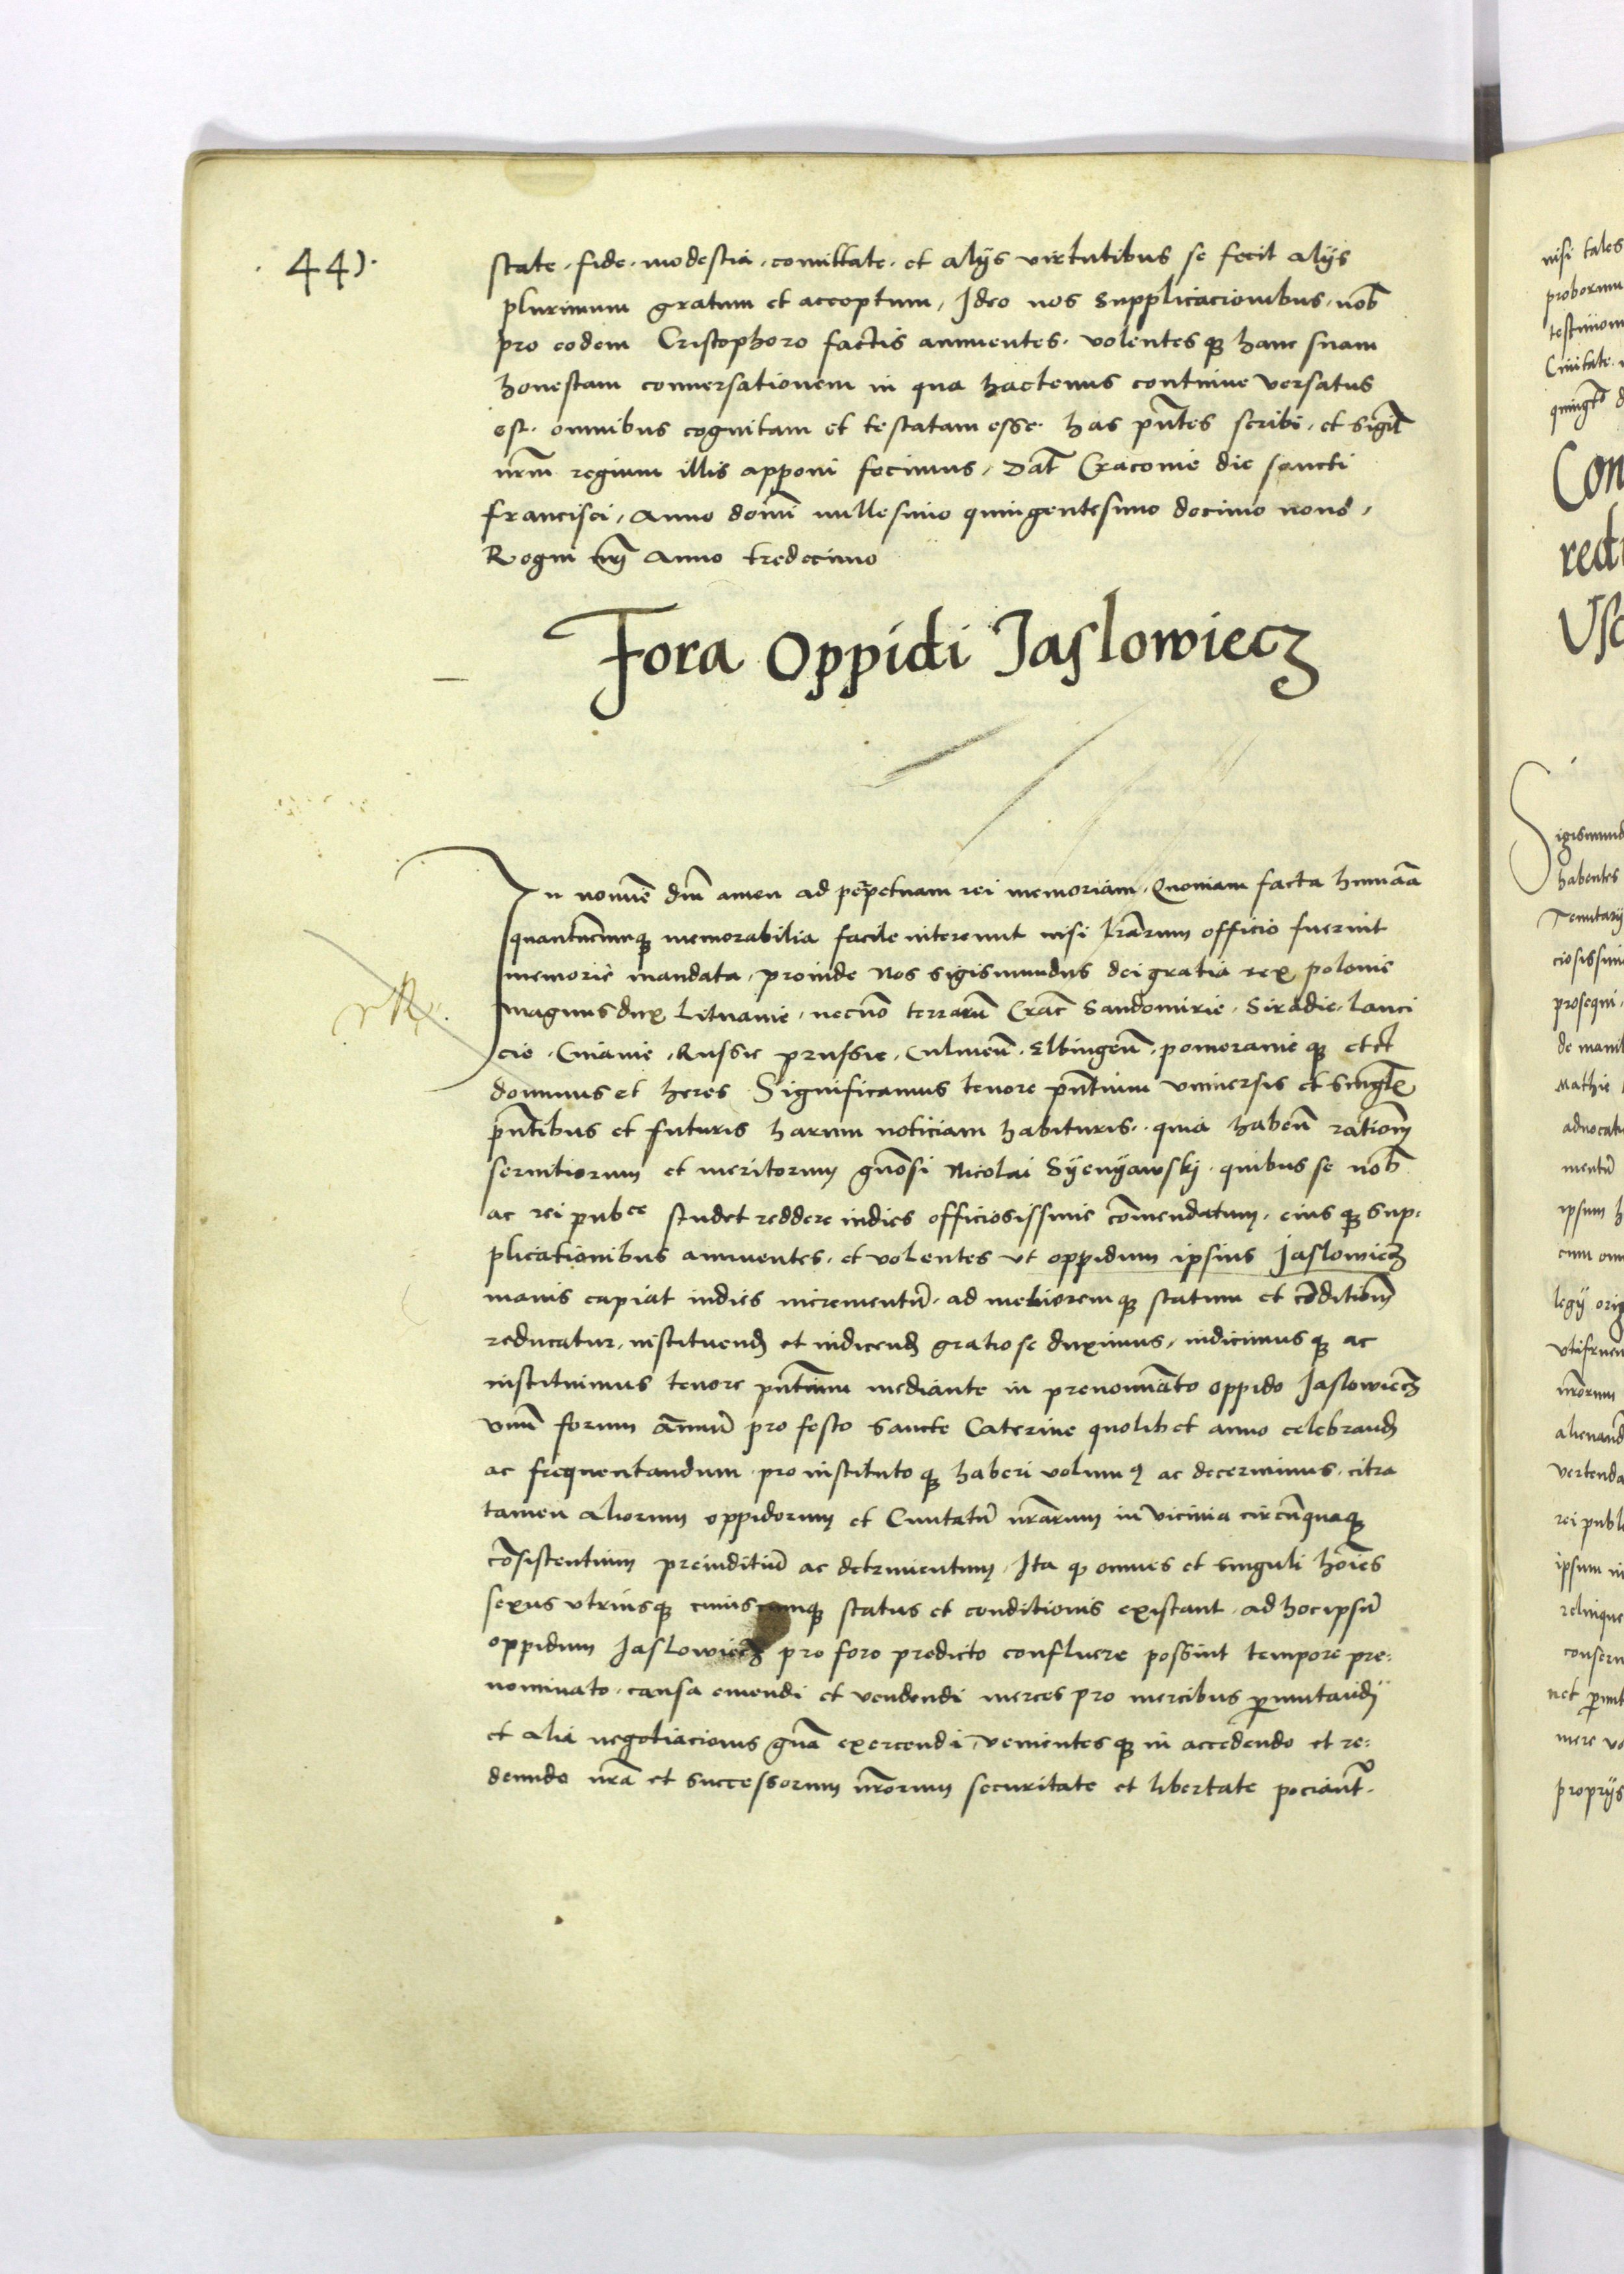 . 44).
state. fide. modestia. comittate. et alijs virtutibus se fecit alijs
plurimum gratum et acceptum, Ideo nos supplicacionibus, nob̄
pro eodem Cristophoro factis annuentes. volentesq̨ hanc suam
honestam conuersationem in qua hactenus continue versatus
est. omnibus cognitam et testatam esse. has pn̄tes scribi, et sigil̄
nr̄m regium illis apponi fecimus, Dat̄ Cracovie die sancti
francisci, Anno domī millesimo quingentesimo decimo nono,
Regni nr̄i Anno tredecimo
Fora Oppidi Jaslowiecz
In nomīe dnī amen ad perpetuam rei memoriam, Quoniam facta humāa
quantūcumq̨ memorabilia facile intereunt nisi lr̄arum officio fuerint
memorie mandata, proinde Nos sigismundus dei gratia rex polonie
magnus dux Lituanie, necnō terrarū Crac̄ Sandomirie, Siradie, Lanci
cie, Cuiauie, Russie prussie, Culmeñ, Elbingeñ, pomeranieq̨ etc̄
dominus et heres Significamus tenore pn̄tium vniuersis et singl̄is
pn̄tibus et futuris harum noticiam habituris, quia habeñ rationē
seruitiorum et meritorum gnōsi Nicolai Syenyawskj, quibus se nob̄
ac rei pubce studet reddere indies officiosissime cōmendatum, eiusq̨ sup-
plicationibus annuentes, et volentes vt oppidum ipsius Jaslowiecz
maius capiat indies incrementū, ad melioremq̨ statum et cōditionē
reducatur, instituend̄ et indicend̄ gratiose duximus, indicimusq̨ ac
instituimus tenore pn̄tium mediante in prenomīato oppido Jaslowiecz
vnū forum ānuū pro festo Sancte Caterine quolibet anno celebrand̄
ac frequentandum, pro institutoq̨ haberi volumꝯ ac decernimus, citra
tamen aliorum oppidorum et Ciuitatū nr̄arum in vicinia circūquaq̨
cōsistentium preiuditiū ac detrimentum, Ita q̨ omnes et singuli hoīes
sexus vtriusq̨ cuiuscumq̨ status et conditionis existant, ad hoc ipsū
oppidum Jaslowiecz pro foro predicto confluere possint tempore pre-
nominato, causa emendi et vendendi merces pro mercibus ꝑmutand̄
et alia negotiacionis gn̄a exercendi, venientesq̨ in accedendo et re-
deundo nr̄a et successorum nr̄orum securitate et libertate pociant̄.
nisi tales
proborum
Ciuitate
Con
Sigismund
habentes
Tenutarij
prosequi
de mani
Mathie
aduocati
mentū
ipsum
cum om
nr̄orum
alienand
vertenda
rei publ
ipsum
relinque
conseru
mere vo
proprijs